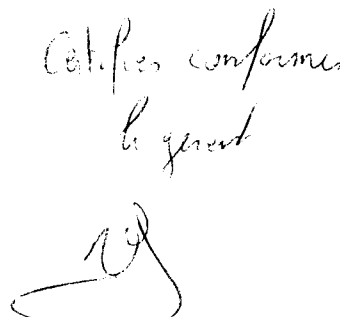 Certifiés conformes
le gérant